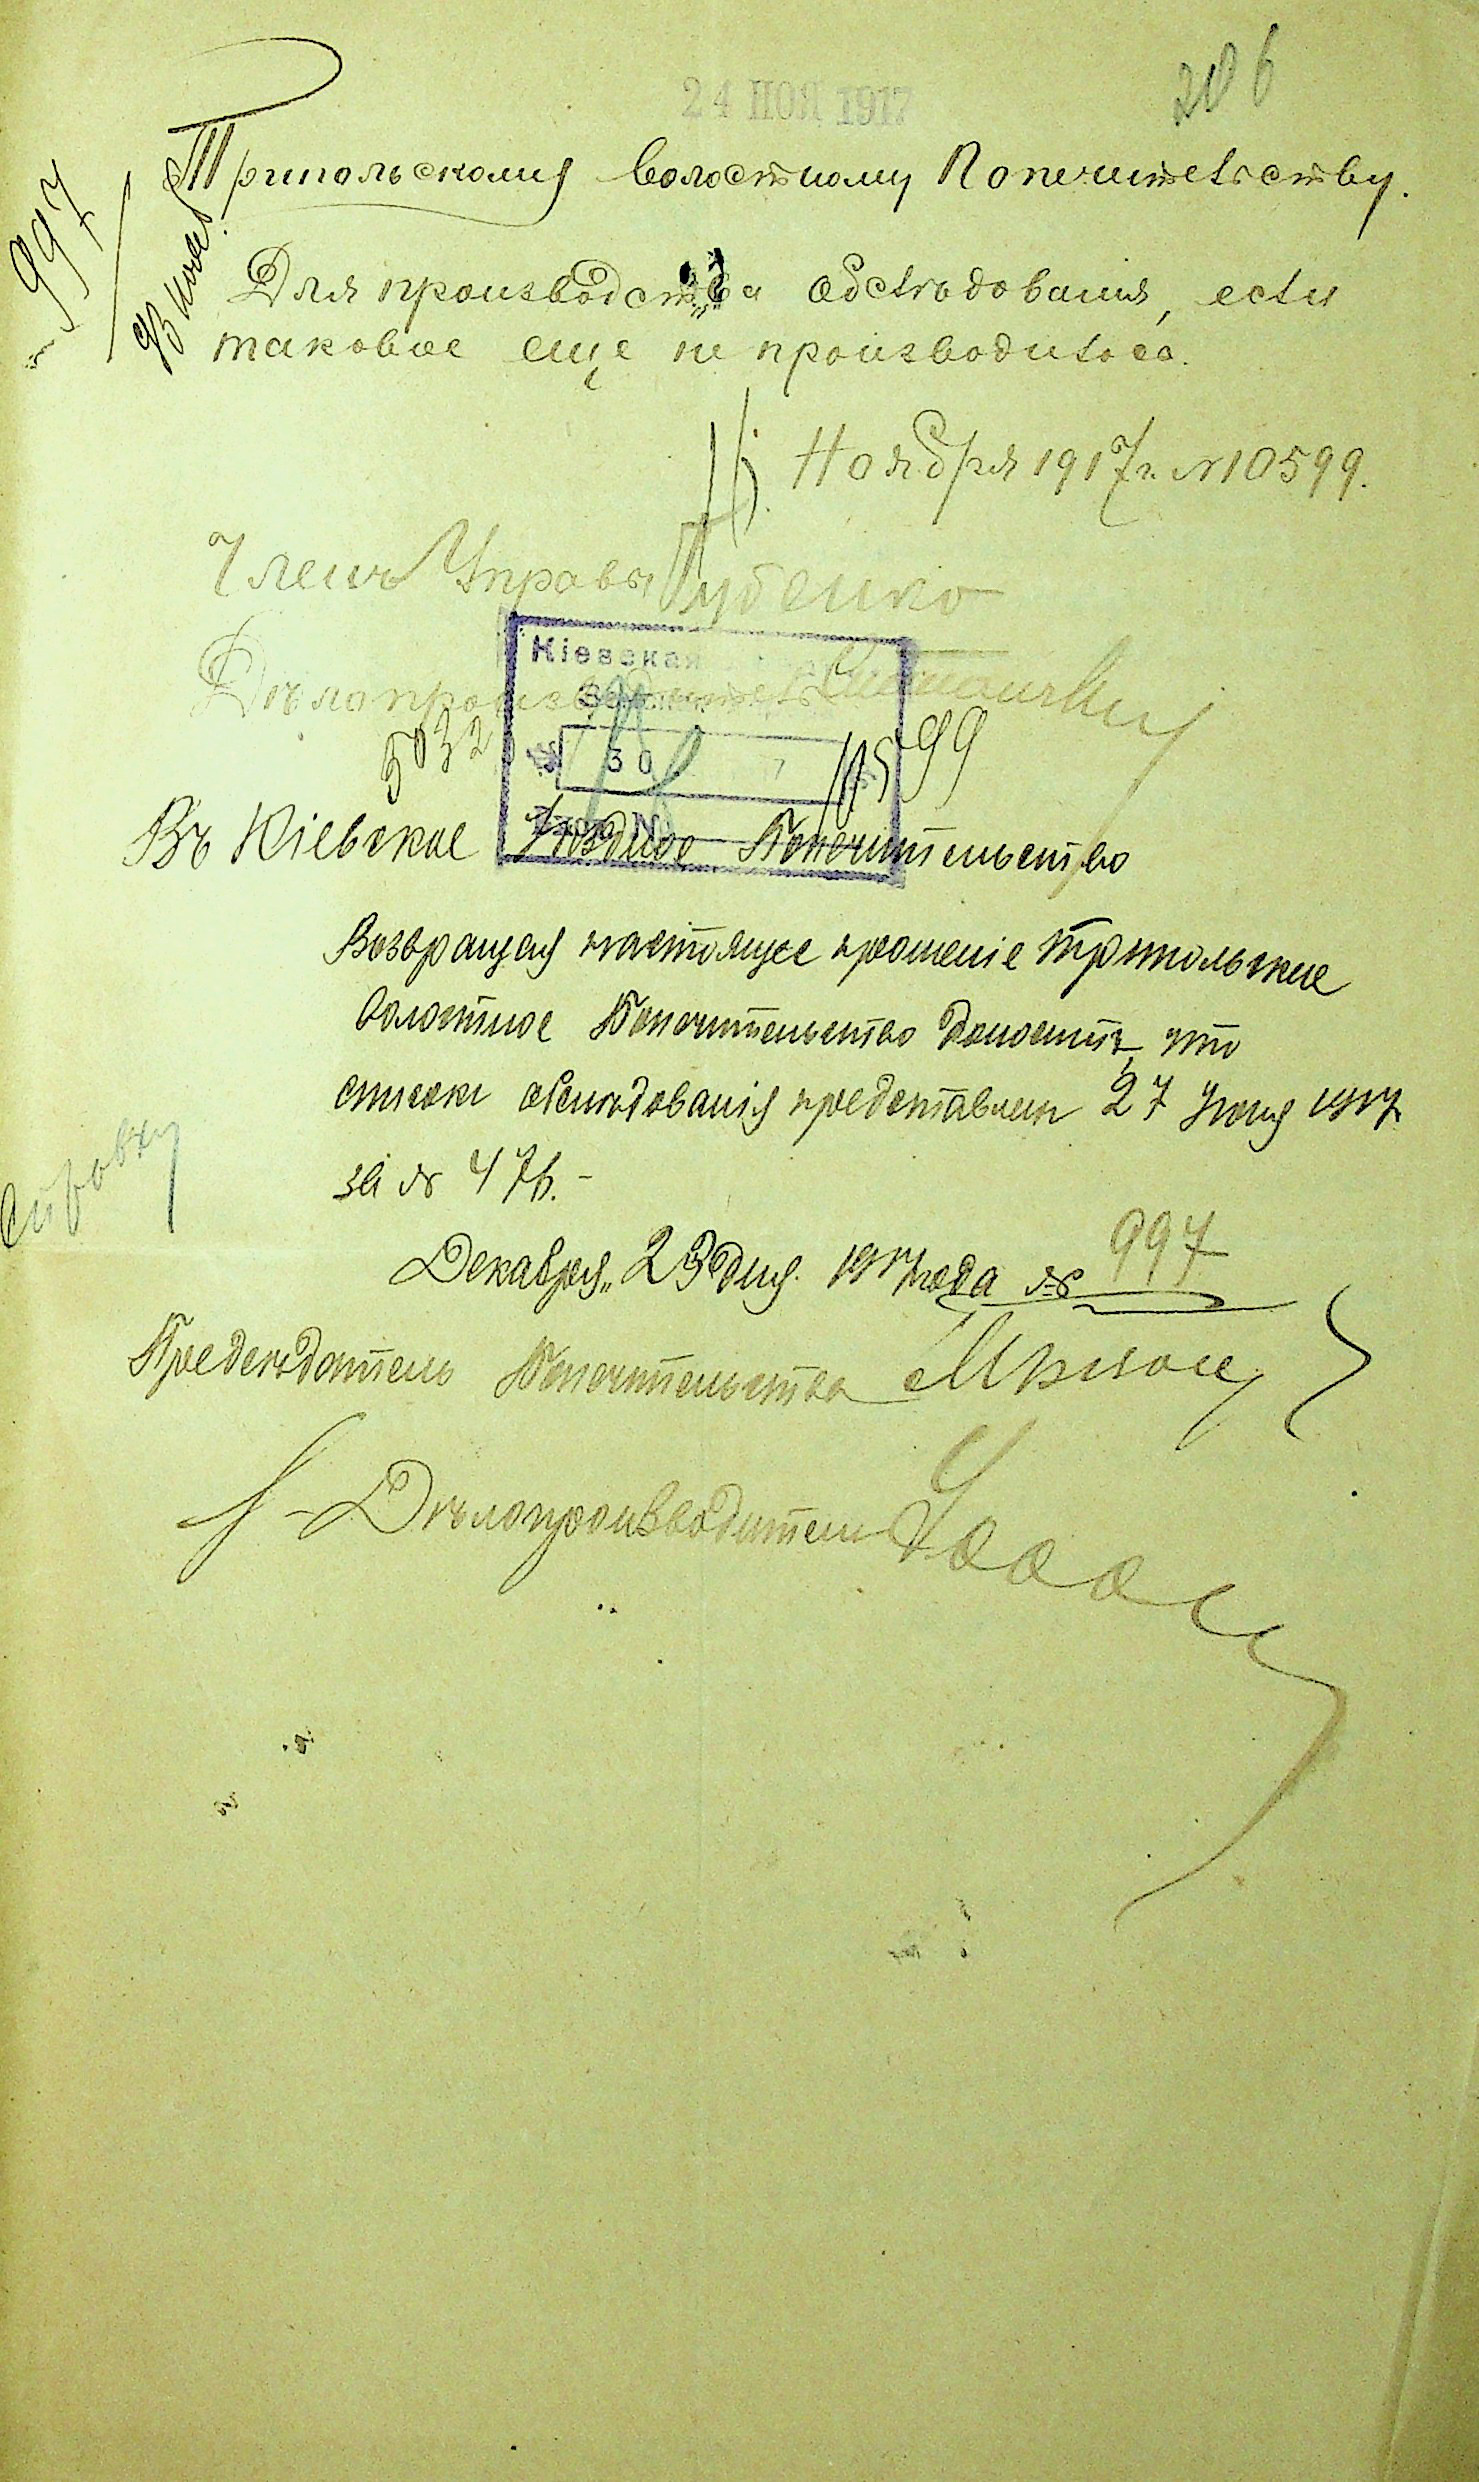 24 НОЯ 1917
206
997
Трипольскому Волостному Попечительству.
Для производства обслѣдованія, если
таковое еще не производилось.
16 Ноября 1917 г. № 10599.
Членъ Управы Губенко
Кіевская
Дѣлопроизводитель
5032
30
10599
Въ Кіевское Уѣздное Попечительство
Возвращая настоящее прошеніе Трипольское
Волостное Попечительство доноситъ, что
списокъ обслѣдованія представленъ 27 Іюня 1917
за № 476.-
Справку
Декабря "23 дня 1917 года № 997
Предсѣдатель Попечительства
Дѣлопроизводитель